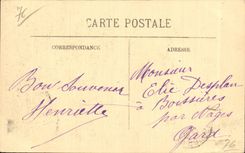 CARTE POSTALE
CORRESPONDANCE
ADRESSE
Bon Souvenir
Henriette
Monsieur
Elie Desplan
à Boissières
par Nages
Gard